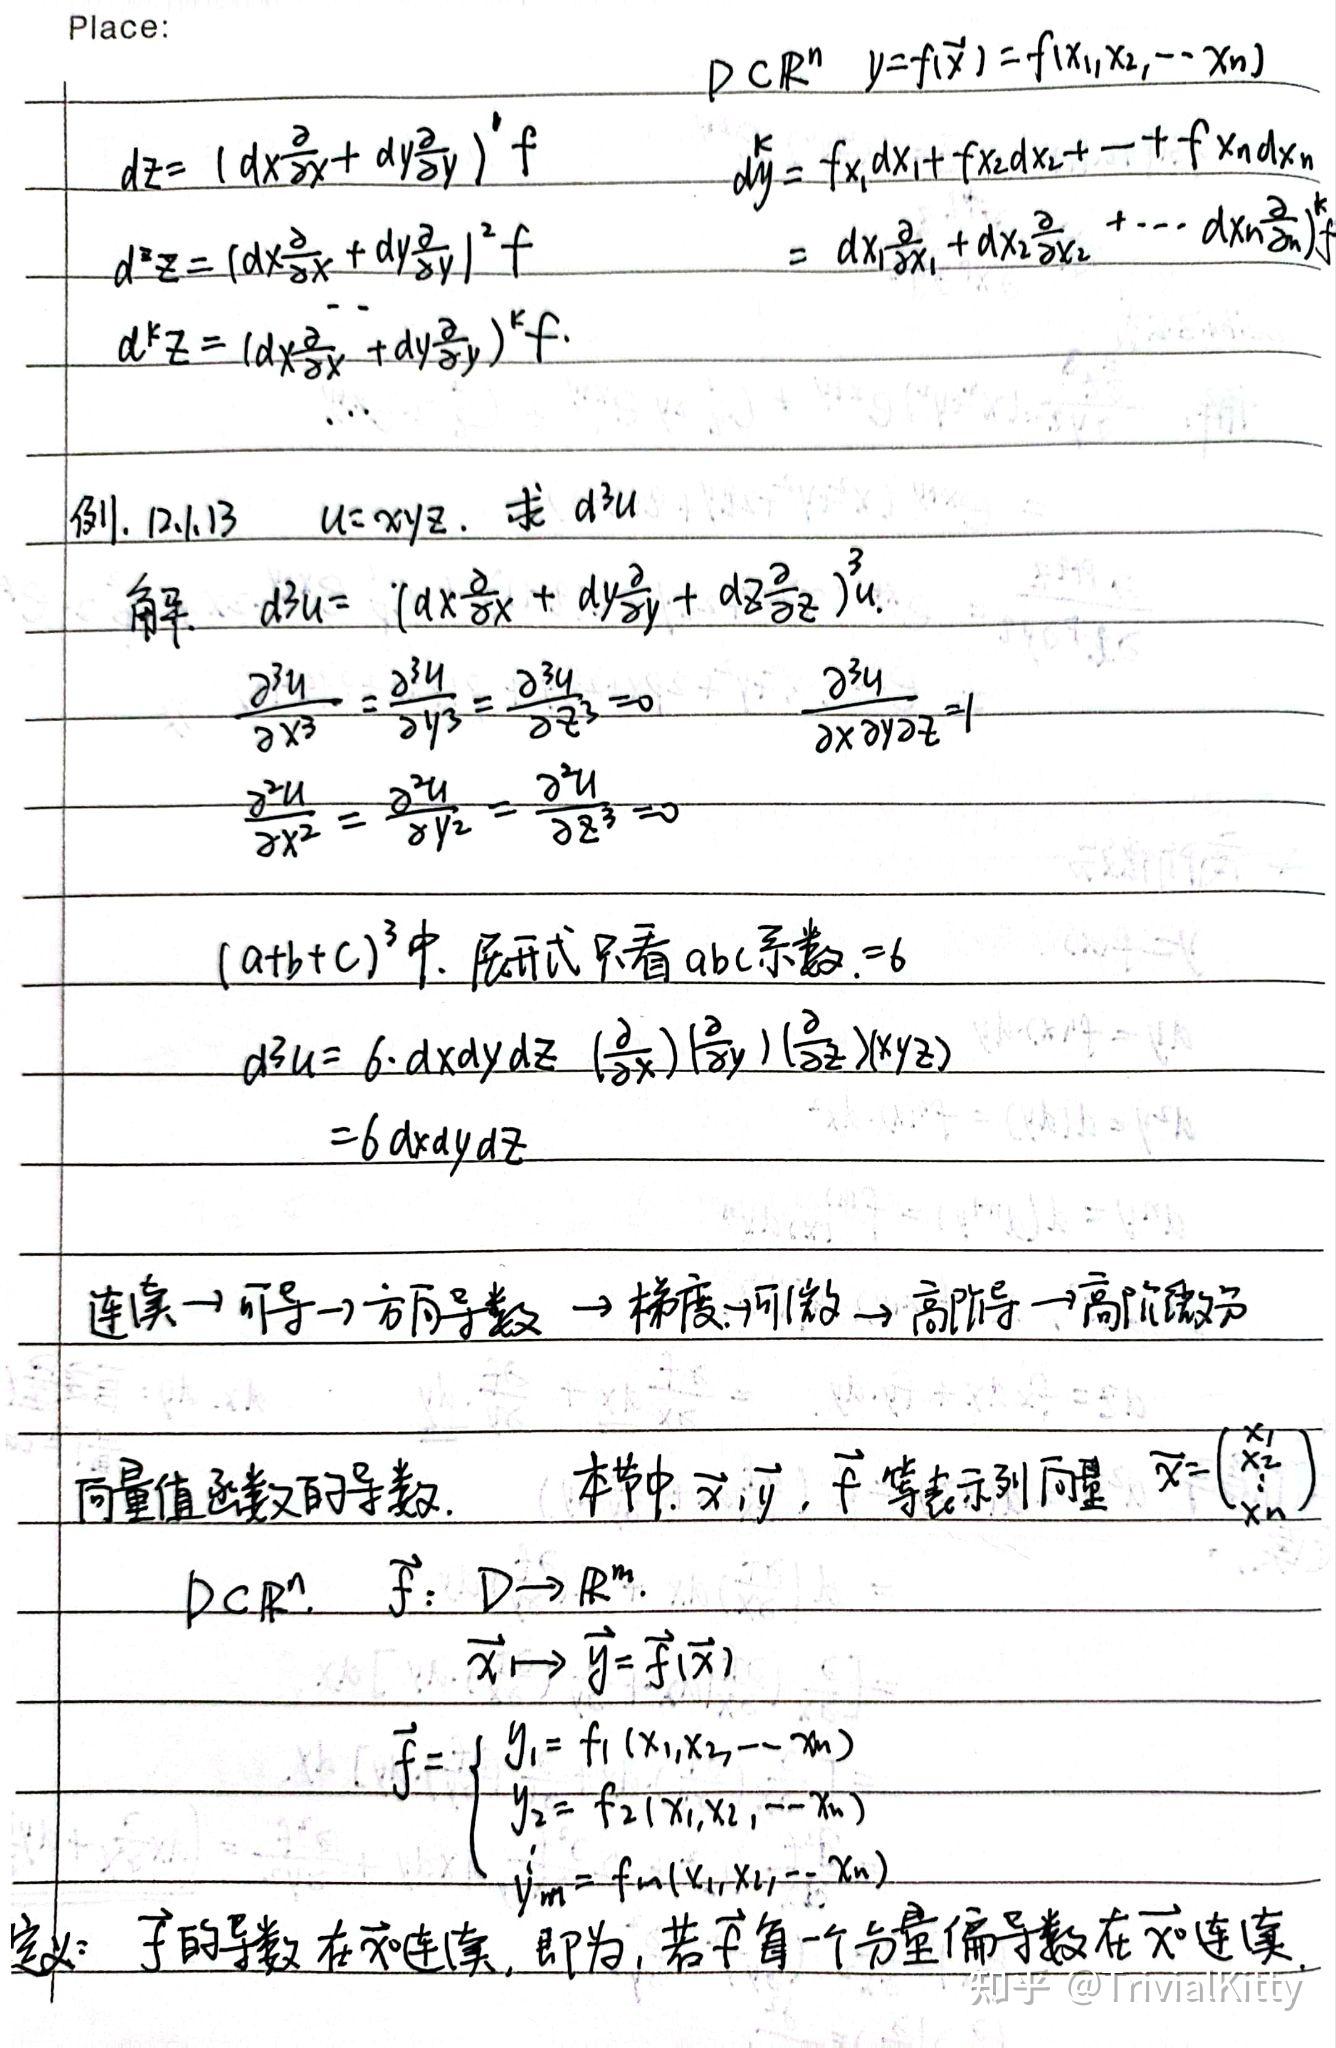 Place:
D⊂ℝⁿ y=f(x⃗)=f(x₁,x₂,--xₙ)
dz=(dx∂/∂x+dy∂/∂y)¹f
dᵏy=fx₁dx₁+fx₂dx₂+--+fxₙdxₙ
d²z=(dx∂/∂x+dy∂/∂y)²f
=dx₁∂/∂x₁+dx₂∂/∂x₂+···dxₙ∂/∂n)ᵏf
--
dᵏz=(dx∂/∂x+dy∂/∂y)ᵏf.
...
例. 12.1.13 u=xyz. 求 d³u
解. d³u=(dx∂/∂x+dy∂/∂y+dz∂/∂z)³u.
∂³u/∂x³=∂³u/∂y³=∂³u/∂z³=0 ∂³u/∂x∂y∂z=1
∂²u/∂x²=∂²u/∂y²=∂²u/∂z³=0
(a+b+c)³中. 展开式只看abc系数.=6
d³u=6·dxdydz (∂/∂x)(∂/∂y)(∂/∂z)(xyz)
=6dxdydz
连续→可导→方向导数→梯度→可微→高阶导→高阶微分
向量值函数的导数. 本节中. x⃗,y⃗, f⃗ 等表示列向量 x⃗=(x₁ x₂ ⋮ xₙ)
D⊂ℝⁿ. f⃗: D→ℝᵐ.
x⃗↦y⃗=f⃗(x⃗)
f⃗={y₁=f₁(x₁,x₂,--xₙ)
y₂=f₂(x₁,x₂,--xₙ)
⋮
yₘ=fₘ(x₁,x₂,--xₙ)
定义: f⃗的导数在x⃗⁰连续, 即为, 若f⃗每一个分量偏导数在x⃗⁰连续.
知乎 @TrivialKitty